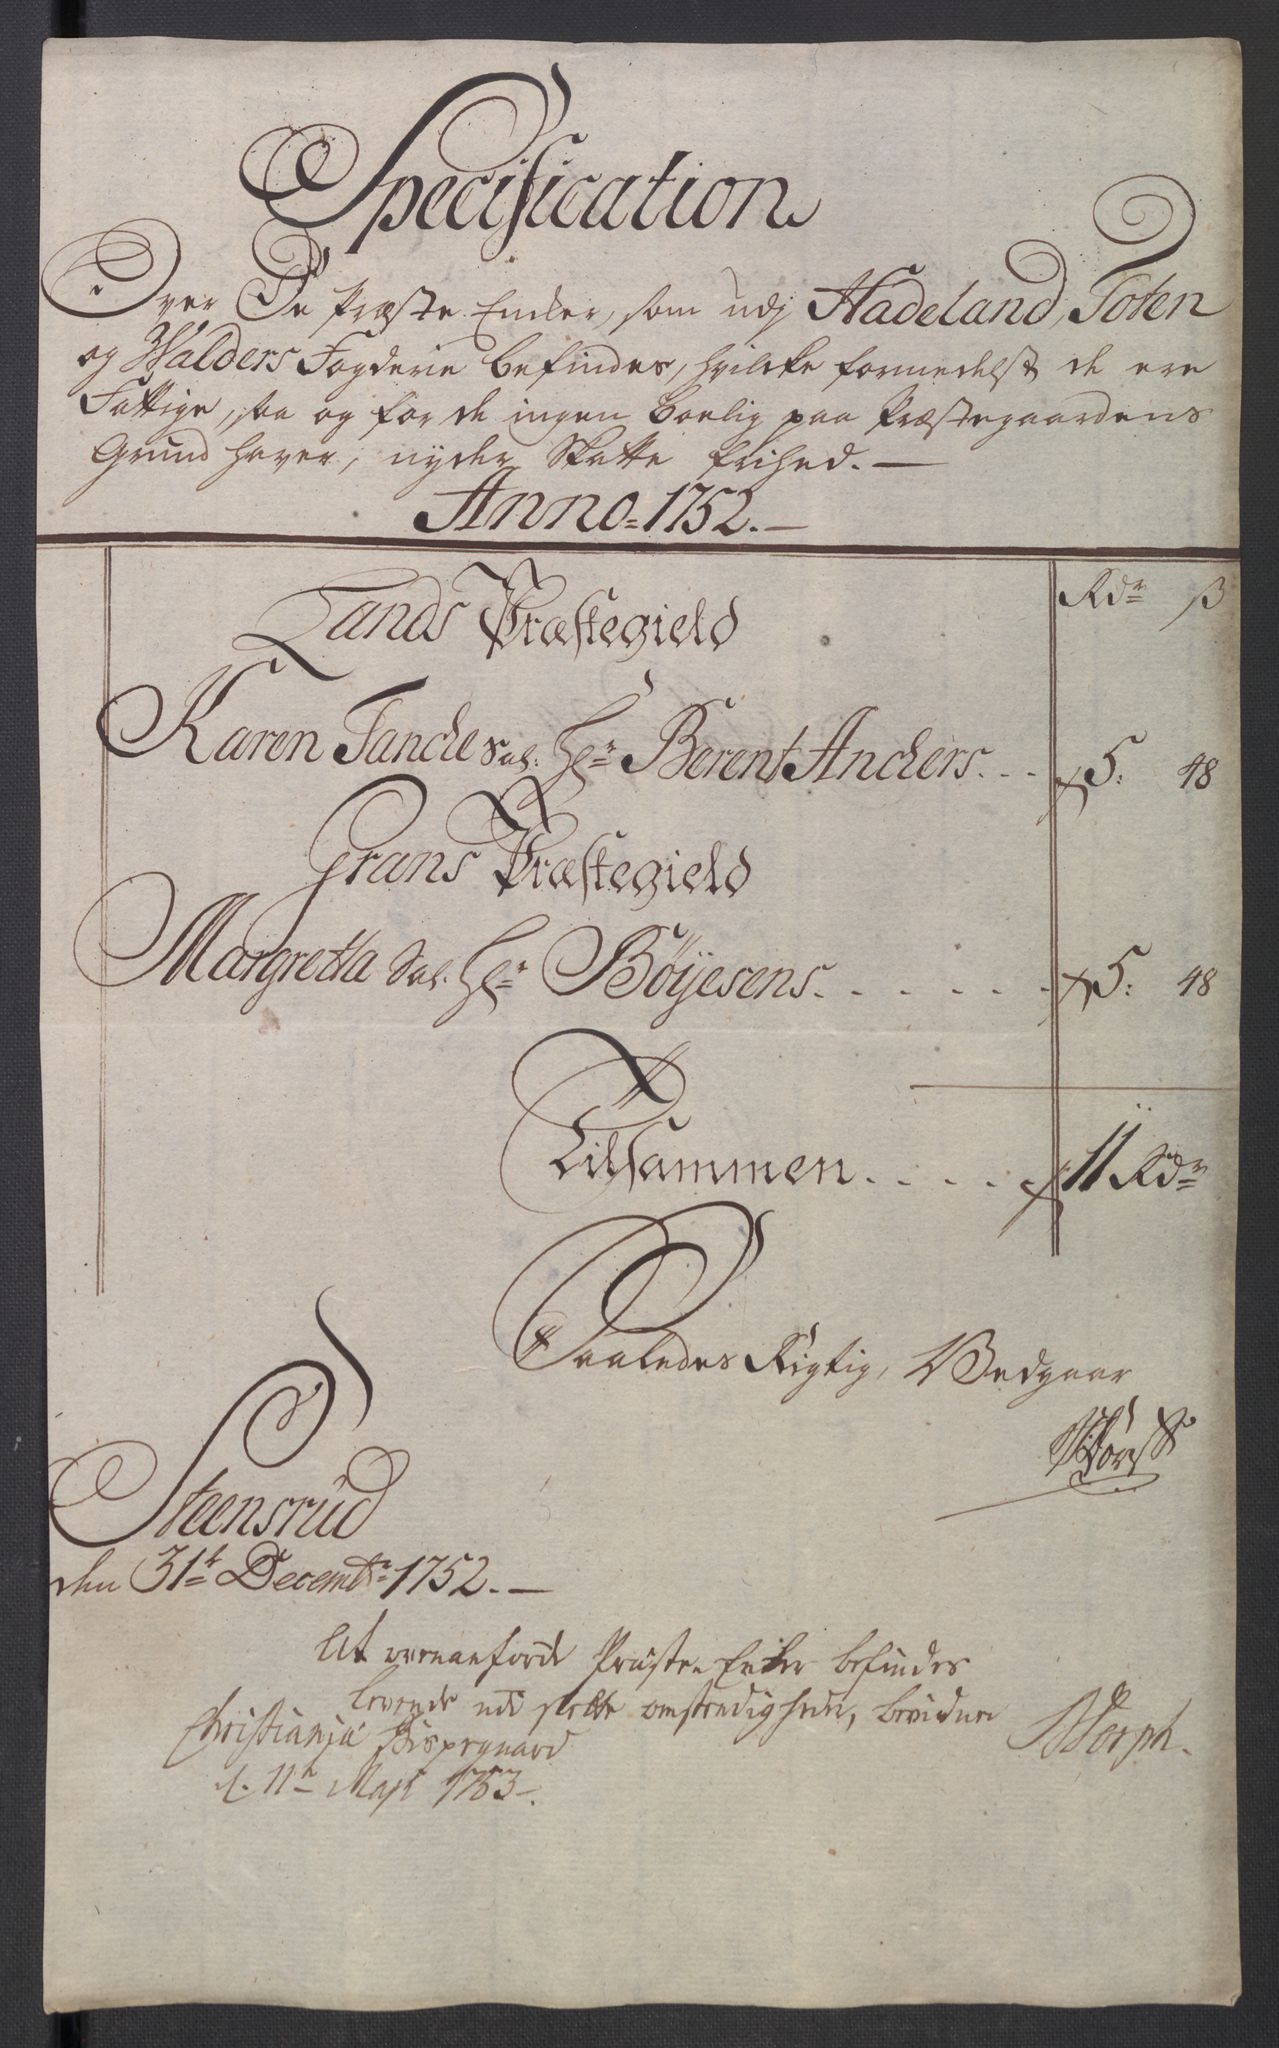 Specification
Over De Præste Encker, som udj Hadeland, Toten
og Walders Fogderie befindes, hvilcke formedelst de ere
Fattige, saa og for de ingen Boelig paa Præstegaardens
Grund haver, nyder Skatte frihed. —
Anno 1752. —
Rdr ß
Lands Præstegield
Karen Fanche Sal: Hr Berent Anchers. . . 5: 48
Grans Præstegield
Margretha Sal. Hr Böÿesens. . . . . . . 5: 48
Tilsammen. . . . . 11 Rdr
Saaledes Rigtig, Vedgaar
Steensrud
den 31te Decembr 1752. —
At ovenanförde Præste Encker befindes
levende udi slette omstendigheder, bevidner
Christiania Bispegaard
d. 11te Maji 1753.